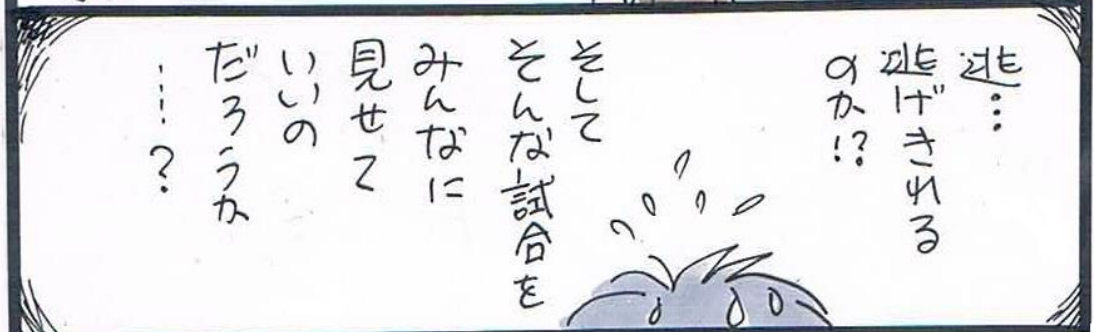 逃…
逃げきれる
のか!?
そして
そんな試合を
みんなに
見せて
いいの
だろうか
……?